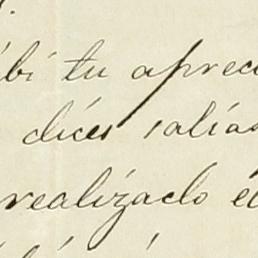 ibí tu apreci
dices salías
realizado é